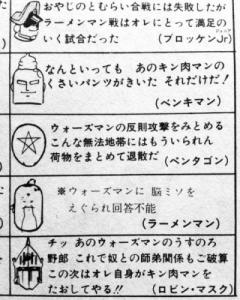 おやじのとむらい合戦には失敗したが
ラーメンマン戦はオレにとって満足の
いく試合だった (ブロッケンJr)
ジュニア
なんといっても あのキン肉マンの
くさいパンツがきいた それだけだ!
(ベンキマン)
ウォーズマンの反則攻撃をみとめる
こんな無法地帯にはもういられん
荷物をまとめて退散だ (ペンタゴン)
※ウォーズマンに 脳ミソを
えぐられ回答不能
(ラーメンマン)
チッ あのウォーズマンのうすのろ
野郎 これで奴との師弟関係もご破算
この次はオレ自身がキン肉マンを
たおしてやる!! (ロビン・マスク)